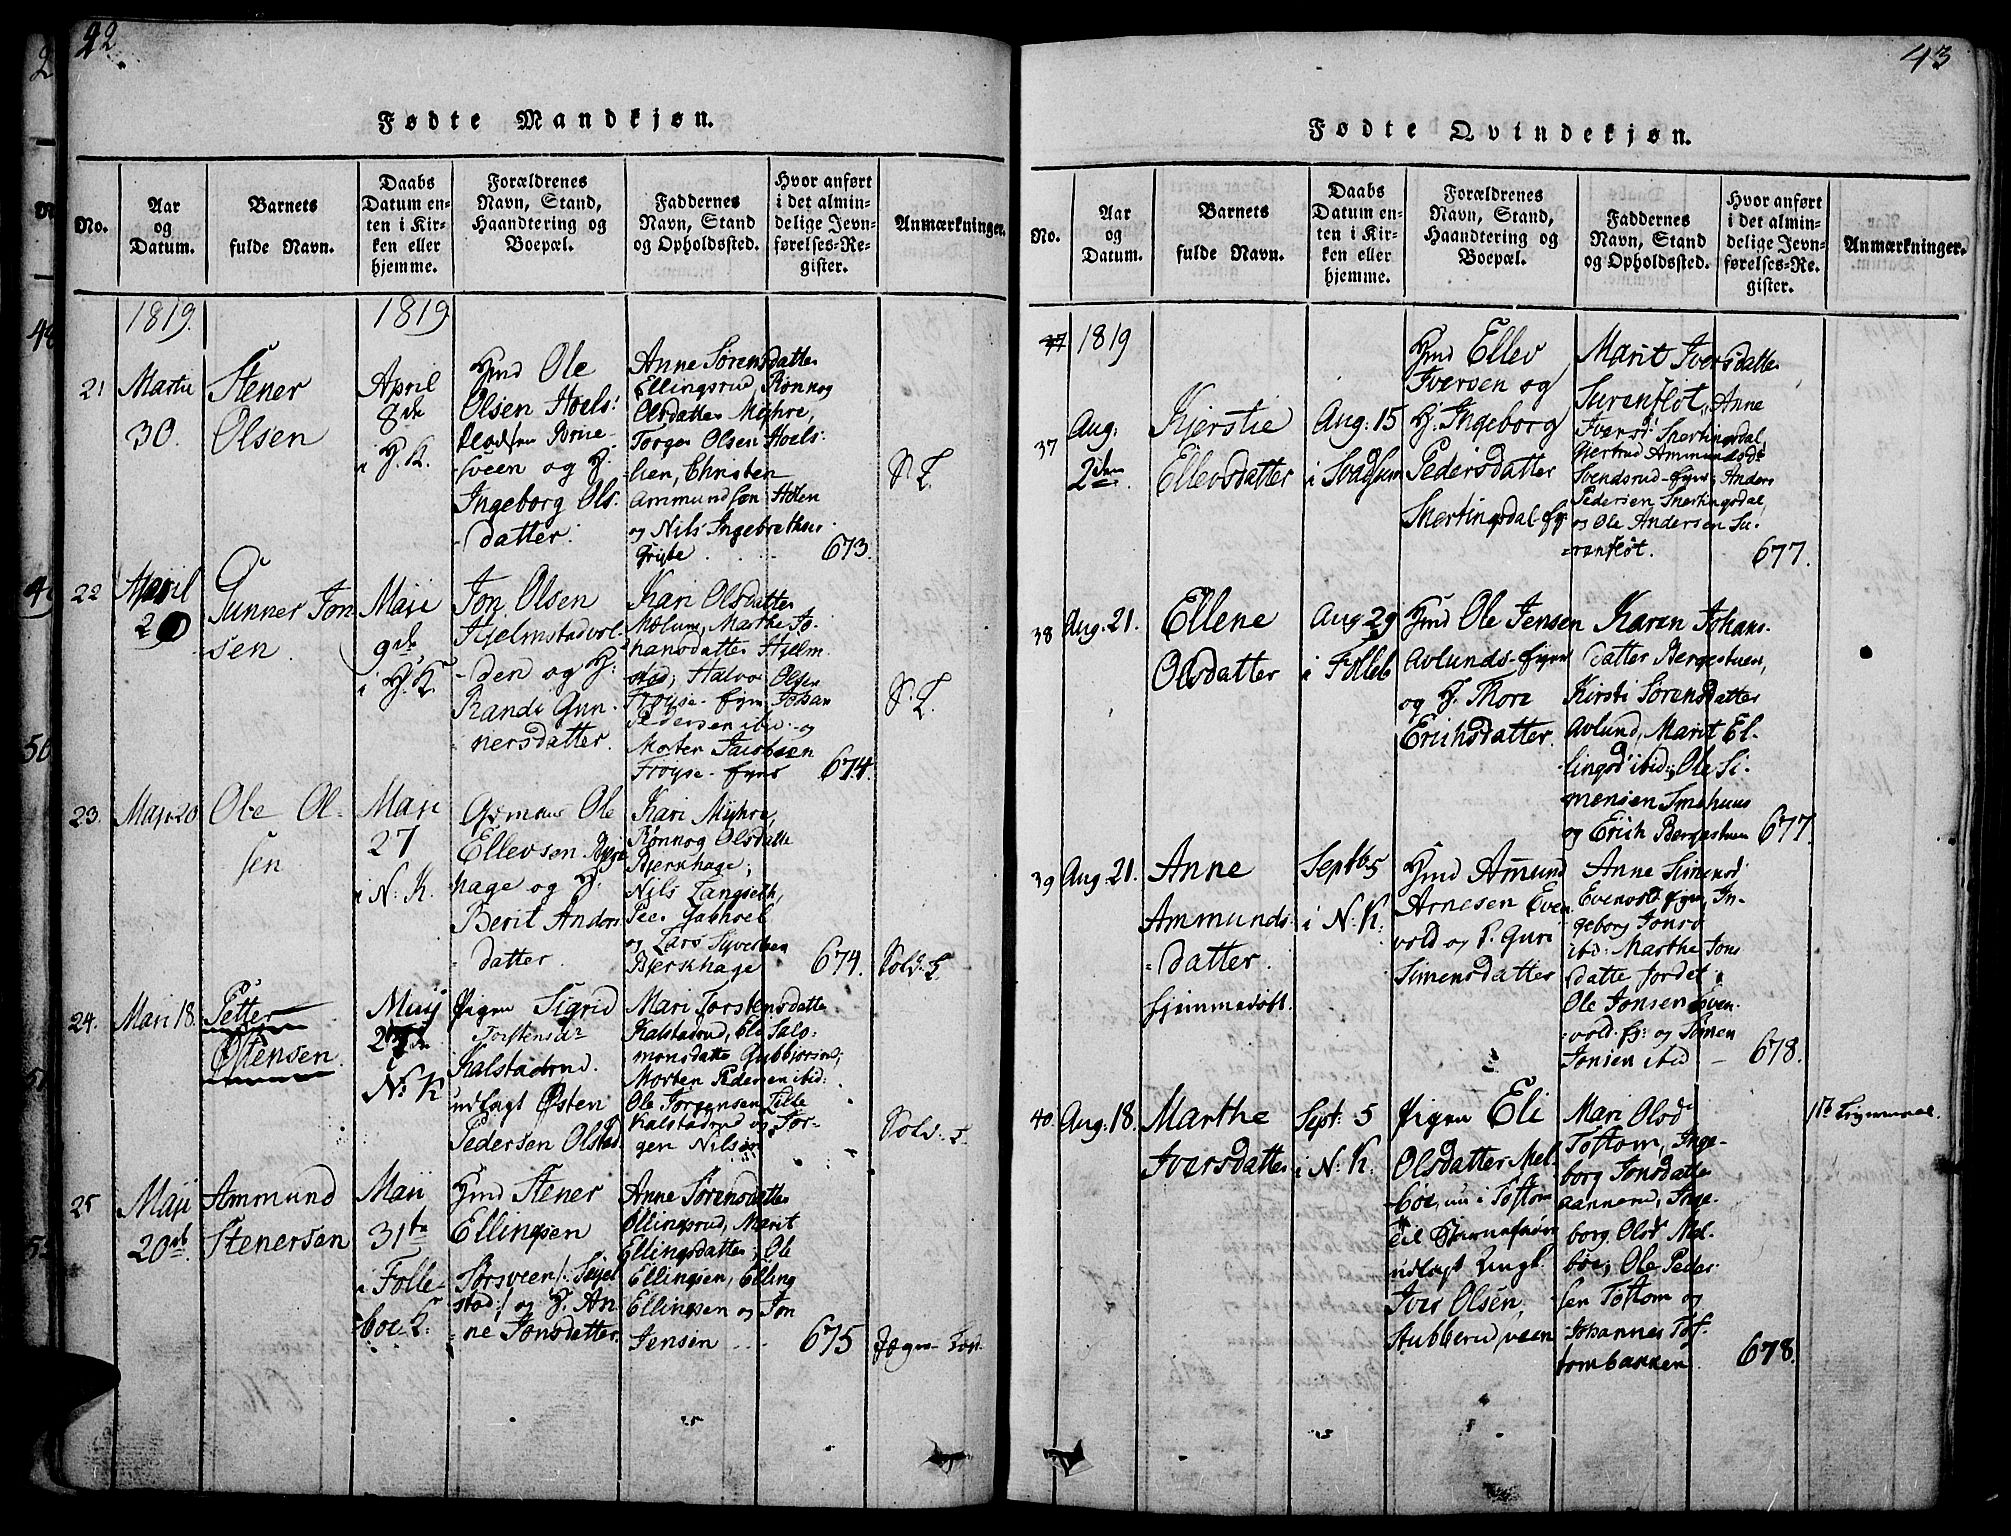 22
Fødte Mandkjøn.
No.
Aar
og
Datum.
Barnets
fulde Navn.
Daabs
Datum en-
ten i Kir-
ken eller
hjemme.
Forældrenes
Navn, Stand,
Haandtering og
Boepæl.
Faddernes
Navn, Stand
og Opholdssted.
Hvor anført
i det almin-
delige Jevn-
førelses-Re-
gister.
Anmærkninger.
1819.
1819
21
Martii
30.
Stener
Olsen
April
8de
i H. K.
Hmd Ole
Olsen Hoels:
sveen og H.
Ingeborg Ols.
datter.
Anne Sørensdatter
Ellingsrud, Rønnog
Olsdatter Myhre,
Torger Olsen Hoels:
lien, Christen
Ammundsen Holen
og Nils Ingebrethsen
673.
S. L.
22
April
20
Gunner Jon
sen.
Maji
9de
i H. K.
Jon Olsen
Hjelmstadvol-
den og H:
Randi Gun-
nersdatter.
Kari Olsdatter
Molum, Marthe Jo-
hansdatter Hjelm
stad, Halvor Olsen
Frøyse- Johan
Pedersen ibd. og
Morten Jacobsen
Frøyse-
674.
S. L.
23.
Maji 20
Ole Ol-
sen
Maji
27
i N. K.
Ole
Ellevsen
hage og H.
Berit Anders
datter.
Kari Myhre,
Rønnog Olsdatter
Bierkhage,
Nils Langseth,
Peer
og Lars Syversen
Bierkhage
674.
Sold. L
24.
Maji 18.
Petter
Østensen.
Maij
i
N. K
Pigen Sigrid
Torstensdr
Kalstadrud.
udlagt Østen
Pedersen Olstad.
Mari Torstensdatter
Kalstadrud, Eli Salo-
monsdatter
Morten Pedersen ibid:
Ole Jørgensen Lille
Kalstadrud og Jør-
gen Nilsen
Sold. L.
25
Maji
20de
Ammund
Stenersen
Maji
31te
i Folle
boe K.
Hmd Stener
Ellingsen
og H. An-
ne Jonsdatter.
Anne Sørensdatter
Ellingsrud, Marit
Ellingsdatter, Ole
Ellingsen, Elling
Ellingsen og Jon
Jensen
675
43
Fødte Qvindekjøn.
No.
Aar
og
Datum.
Barnets
fulde Navn.
Daabs
Datum en-
ten i Kir-
ken eller
hjemme.
Forældrenes
Navn, Stand,
Haandtering og
Boepæl.
Faddernes
Navn, Stand
og Opholdssted.
Hvor anført
i det almin-
delige Jevn-
førelses-Re-
gister.
Anmærkninger.
1819
37
Aug:
2den
Kjerstie
Ellevsdatter
Aug: 15
i Svadsum
Hmd Ellev
Iversen og
H. Ingeborg
Pedersdatter
Snertingsdal
Marit Iversdatter
Suranfløt, Anne
Snertingsdal,
Gjertrud Ammundsdr
Svendsrud- Anders
Pedersen Snertingsdal,
og Ole Andersen Su-
ranfløt.
677.
38
Aug. 21.
Ellene
Olsdatter
Aug 29
i Folleb
Hmd Ole Jensen
Avlunds-
og H. Thore
Erichsdatter.
Karen Johans-
datter Bergestuen,
Kirsti Sørensdatter
Avlund, Marit El-
lingsd ibid; Ole Si-
mensen
og Erich Bergestuen
677.
39
Aug. 21.
Anne
Ammunds-
datter.
hjemmedøbt.
Septb 5
i N. K.
Hmd Amund
Arnesen Even
vold og P. Guri
Simensdatter
Anne Simensd
Evenvold In-
geborg
ibid. Marthe Jons
datter Jordet
Ole Jonsen Even-
vold og Simen
Jonsen ibid
678.
40.
Aug: 18.
Marthe
Iversdatter
Sept: 5
i N. K.
Pigen Eli
Olsdatter Mel-
boe, nu i Toftom
udlagt Ungk.
Iver Olsen
Stubberudsveen
Mari Olsd
Toftom, Inge-
borg Jonsdatter
Inge-
borg Olsd Mel-
boe, Ole Peder-
sen Toftom og
Johannes Tof-
tombakken
678.